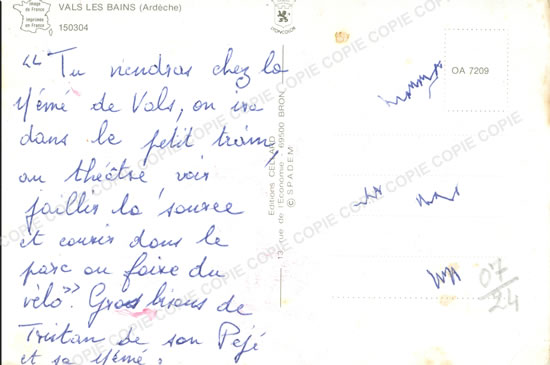 Image de France
Imprimées en France
VALS LES BAINS (Ardèche)
150304
« Tu viendras chez la
Mémé de Vals, on ira
dans le petit train,
au théâtre, voir
jaillir la source
et courir dans le
parc ou faire du
vélo ». Gros bisous de
Tristan de son Pépé
et sa Mémé.
Editions CELLARD
12, rue de l'Economie - 69500 BRON
© SPADEM
OA 7209
07/24
COPIE COPIE COPIE COPIE COPIE COPIE